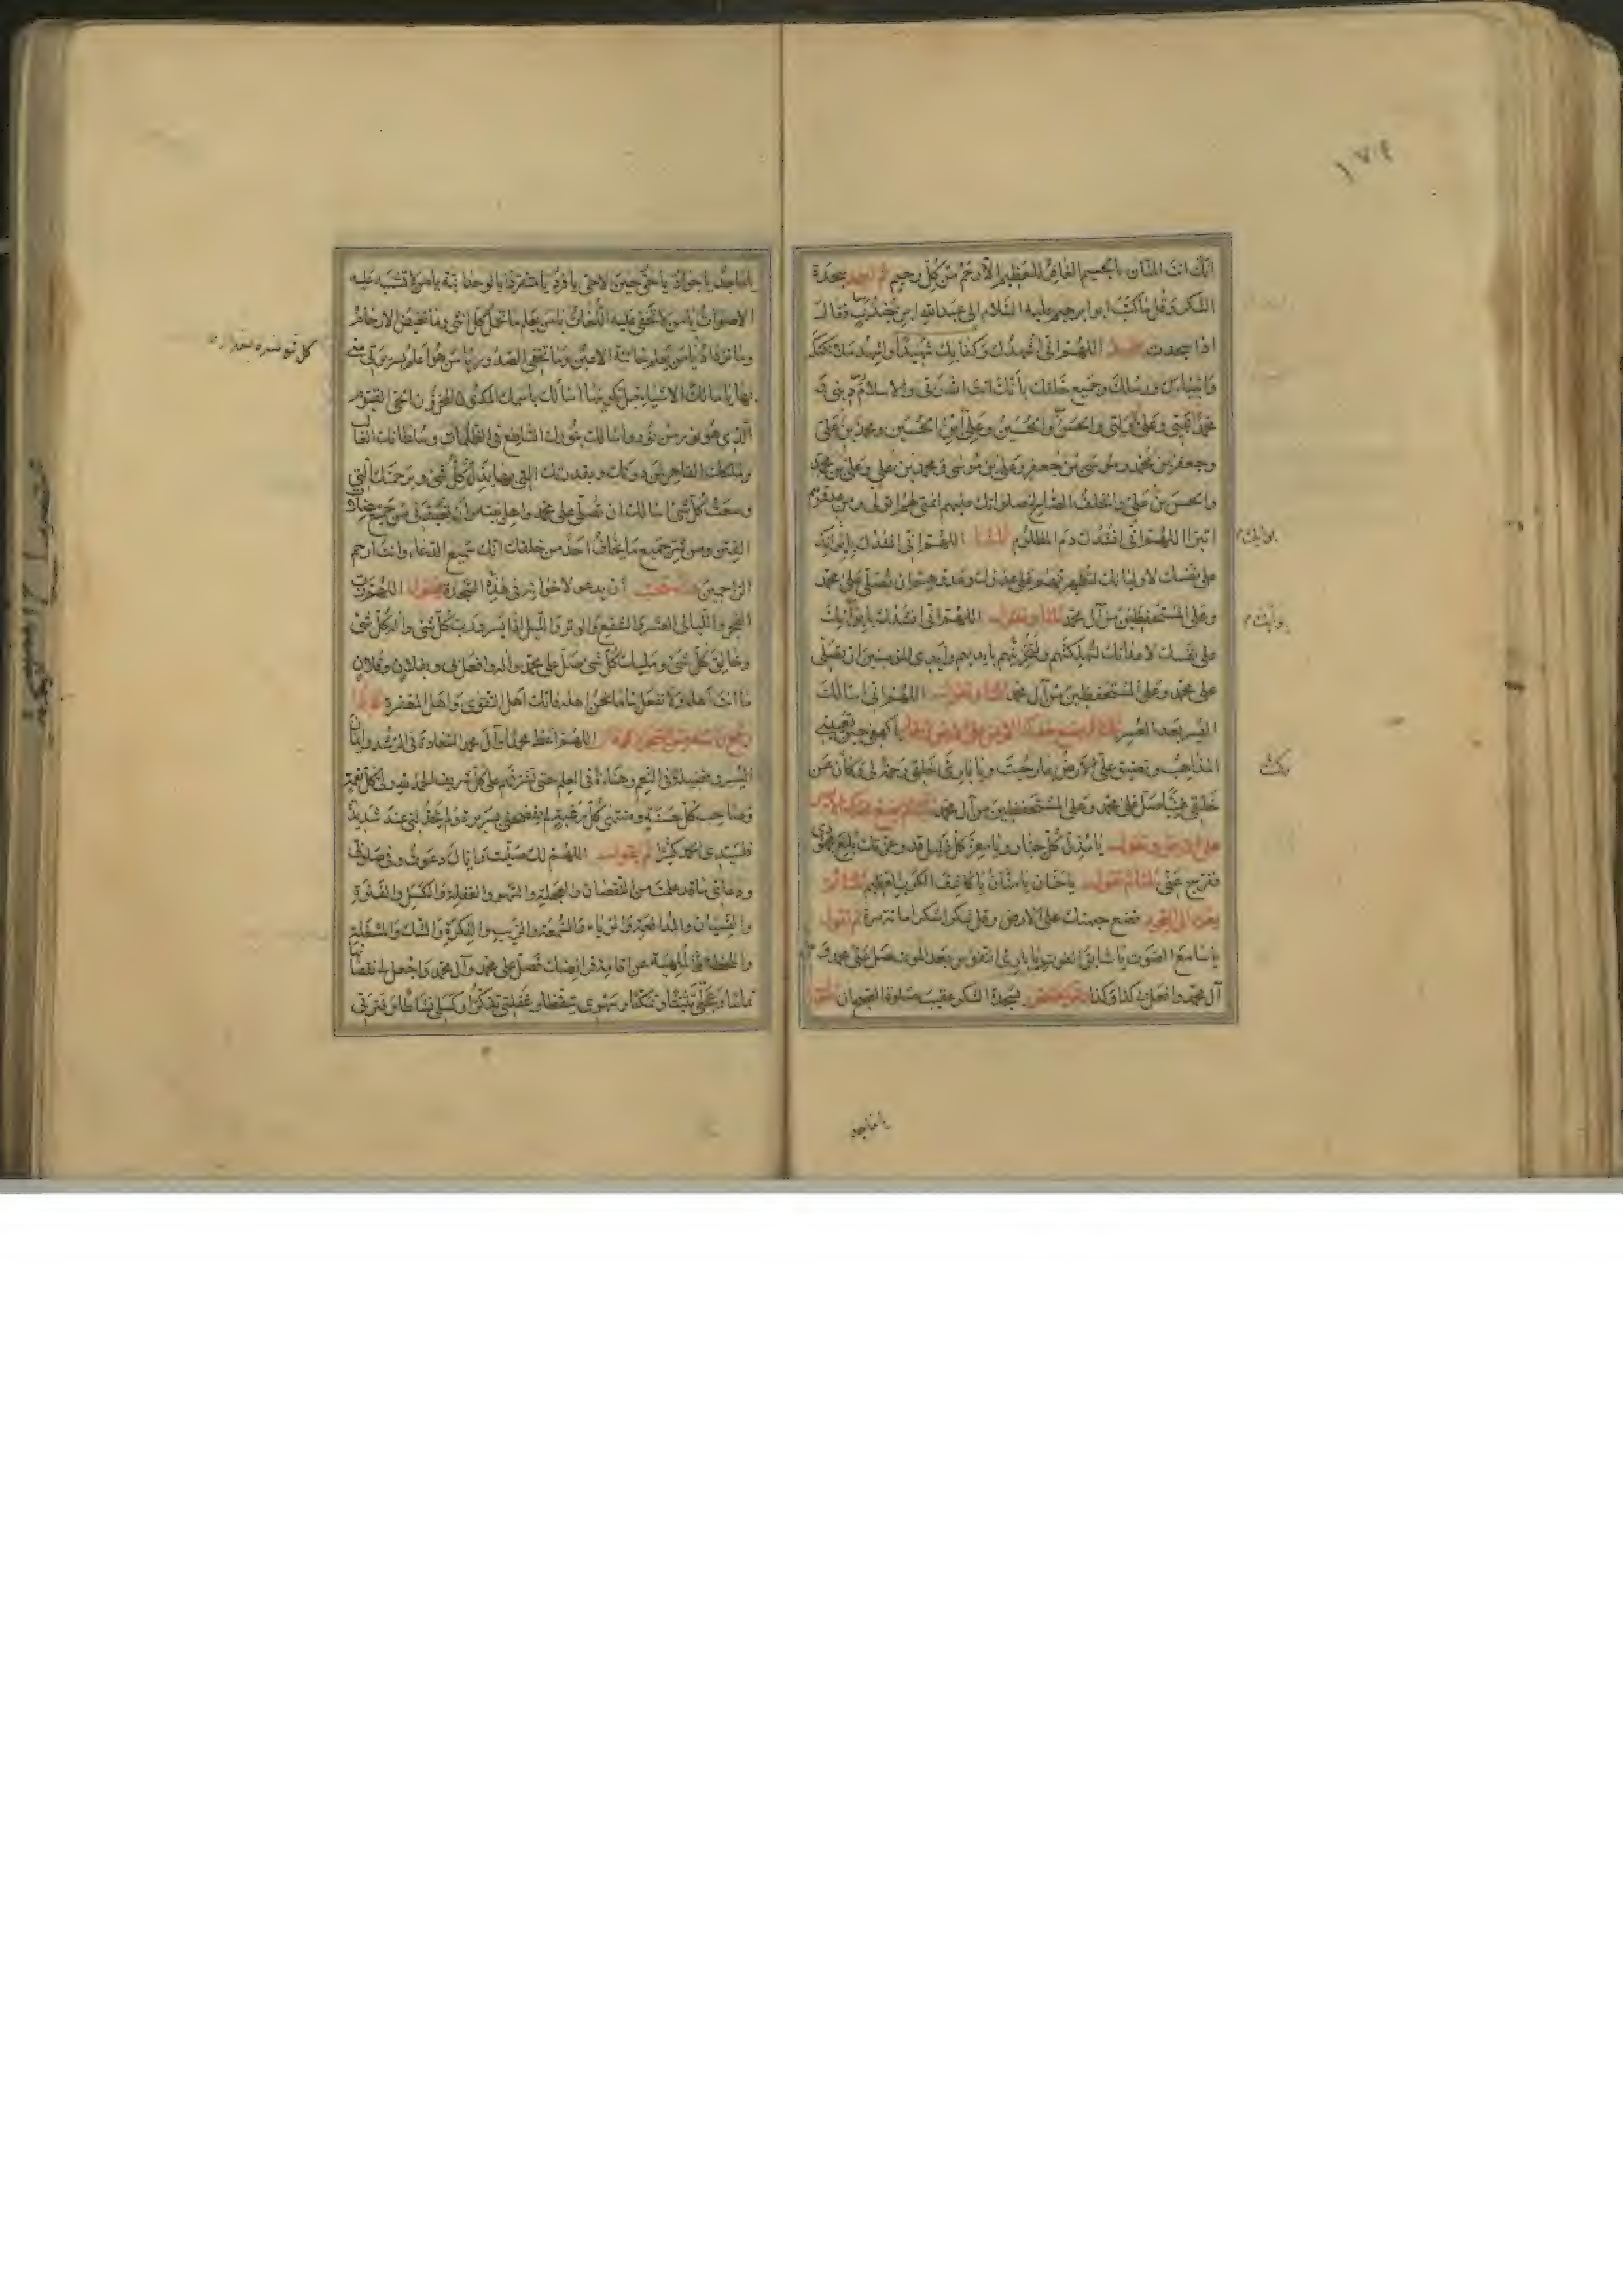 ١٧٤
انك انت المنان بالجسيم الغافر للعظيم الارحم من كل رحيم ثم اسجد سجدة
الشكر وقل ما كتب ابو ابرهيم عليه السلام الى عبدالله ابن جندب فقال
اذا سجدت فقل اللهم انى اشهدك وكفى بك شهيدا واشهد ملائكتك
وانبياءك ورسلك وجميع خلقك بانك انت الله ربى والاسلام دينى و
محمدا نبيى وعلى والحسن والحسين وعلى ابن الحسين ومحمد بن على
وجعفر بن محمد وموسى بن جعفر وعلى بن موسى ومحمد بن على وعلى بن محمد
والحسن بن على والخلف الصالح صلواتك عليهم ائمتى بهم اتولى ومن عدوهم
اتبرا اللهم انى انشدك دم المظلوم ثلثا اللهم انى انشدك بايوائك
على نفسك لاوليائك لتظفرنهم على عدوك وعدوهم ان تصلى على محمد
وعلى المستحفظين من آل محمد ثلثا وتقول اللهم انى انشدك بايوائك
على نفسك لاعدائك لتهلكنهم ولتخزينهم بايديهم وايدى المؤمنين ان تصلى
على محمد وعلى المستحفظين من آل محمد ثلثا وتقول اللهم انى اسالك
اليسر بعد العسر ثلثا ثم تضع خدك الايمن على الارض وتقول يا كهفى حين تعيينى
المذاهب وتضيق على الارض بما رحبت ويا بارئ خلقى رحمة لى وكان عن
خلقى غنيا صل على محمد وعلى المستحفظين من آل محمد ثلثا ثم تضع خدك الايسر
على الارض وتقول يا مذل كل جبار ويا معز كل ذليل قد وعزتك بلغ مجهودى
ففرج عنى ثلثا ثم تقول يا حنان يا منان يا كاشف الكرب العظام ثلثا ثم
تعود الى السجود فتضع جبهتك على الارض وقل شكرا شكرا مائة مرة ثم تقول
يا سامع الصوت يا سابق الفوت يا بارئ النفوس بعد الموت صل على محمد و
آل محمد وافعل بى كذا وكذا لسجدة الشكر عقيب صلوة الصبح ان تقول
يا ماجد
يا ماجد يا جواد يا حى حين لا حى يا فرد يا متفردا بالوحدانية يا من لا تشتبه عليه
الاصوات يا من لا تخفى عليه اللغات يا من يعلم ما تحمل كل انثى وما تغيض الارحام
وما تزداد يا من يعلم خائنة الاعين وما تخفى الصدور يا من هو اعلم بسريرتى منى
بها يا مالك الاشياء قبل تكوينها اسالك باسمك المكنون المخزون الحى القيوم
الذى هو نور من نور واسالك بنورك الساطع فى الظلمات وسلطانك الغالب
وملكك القاهر لمن دونك وبقدرتك التى بها تذل كل شىء وبرحمتك التى
وسعت كل شىء اسالك ان تصلى على محمد واهل بيته وان تعيذنى من جميع مضلات
الفتن ومن شر جميع ما يخاف احد من خلقك انك سميع الدعاء وانت ارحم
الراحمين ان يدعو لاخوانه فى هذه السجدة فيقول اللهم رب
الفجر والليالى العشر والشفع والوتر والليل اذا يسر ورب كل شىء واله كل شىء
وخالق كل شىء ومليك كل شىء صل على محمد واله وافعل بى وبفلان وفلان
ما انت اهله ولا تفعل بنا ما نحن اهله فانك اهل التقوى واهل المغفرة فاذا
رفع راسه من السجود قال اللهم اعط محمدا وآل محمد السعادة فى الرشد وايمان
اليسر وفضيلة فى النعم وهناءة فى العلم حتى تشرفهم على كل شريف الحمد لله ولى كل نعمة
وصاحب كل حسنة ومنتهى كل رغبة لم يفضحنى بسريرة ولم يخذلنى عند شديدة
فلسيدى الحمد كثيرا ثم يقول اللهم لك صليت واياك دعوت وفى صلاتى
ودعائى ما قد علمت من النقصان والعجلة والسهو والغفلة والكسل والفترة
والنسيان والمدافعة والرياء والسمعة والريب والفكرة والشك والمشغلة
واللحظة الملهية عن اقامة فرائضك فصل على محمد وآل محمد واجعل نقصانها
تماما وعجلتى تثبتا وتمكنا وسهوى تيقظا وغفلتى تذكرا وكسلى نشاطا وفترتى